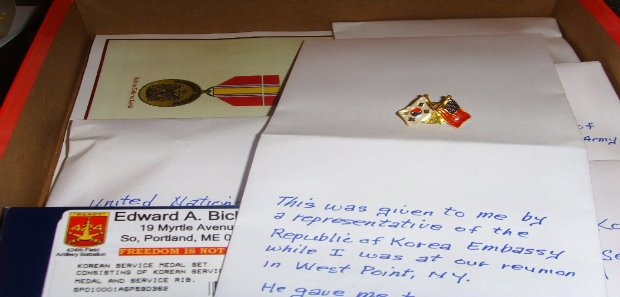 This was given to me by
a representative of the
Republic of Korea Embassy
while I was at our reunion
in West Point, NY.
He gave me
of
Army
United Nation
"READY"
424
424th Field
Artillery Battalion
Edward A.
19 Myrtle
So, Portland, ME
FREEDOM IS NOT
KOREAN SERVICE MEDAL SET
CONSISTING OF KOREAN
MEDAL AND SERVICE RIB.